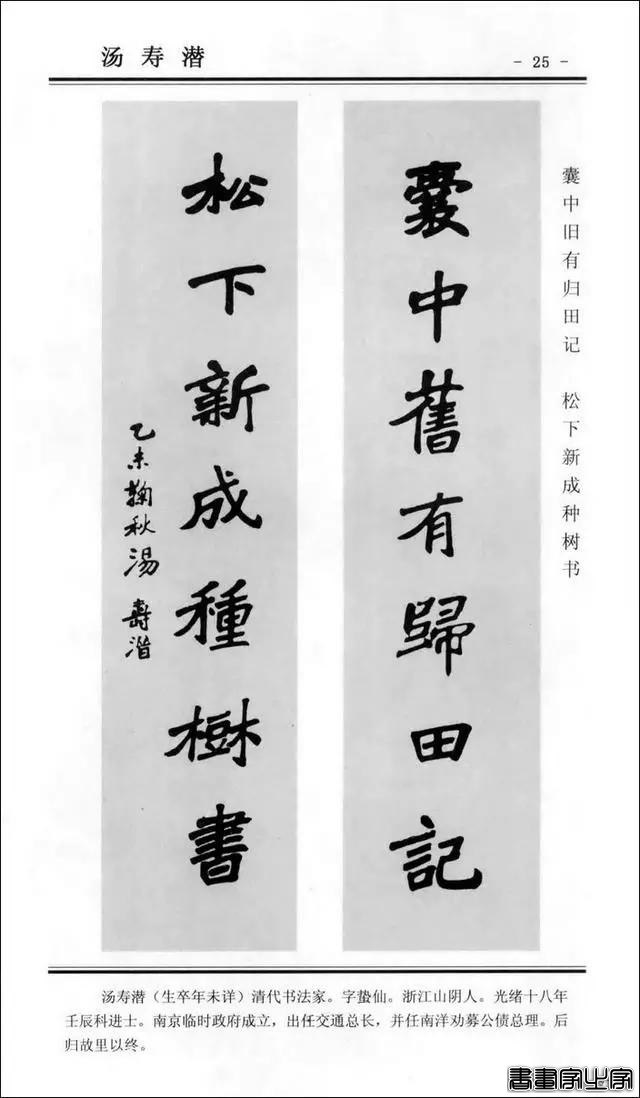 汤寿潜
- 25 -
囊中旧有归田记 松下新成种树书
囊中舊有歸田記
松下新成種樹書
乙未鞠秋湯壽潛
汤寿潜（生卒年未详）清代书法家。字蛰仙。浙江山阴人。光绪十八年
壬辰科进士。南京临时政府成立，出任交通总长，并任南洋劝募公债总理。后
归故里以终。
書畫家必字